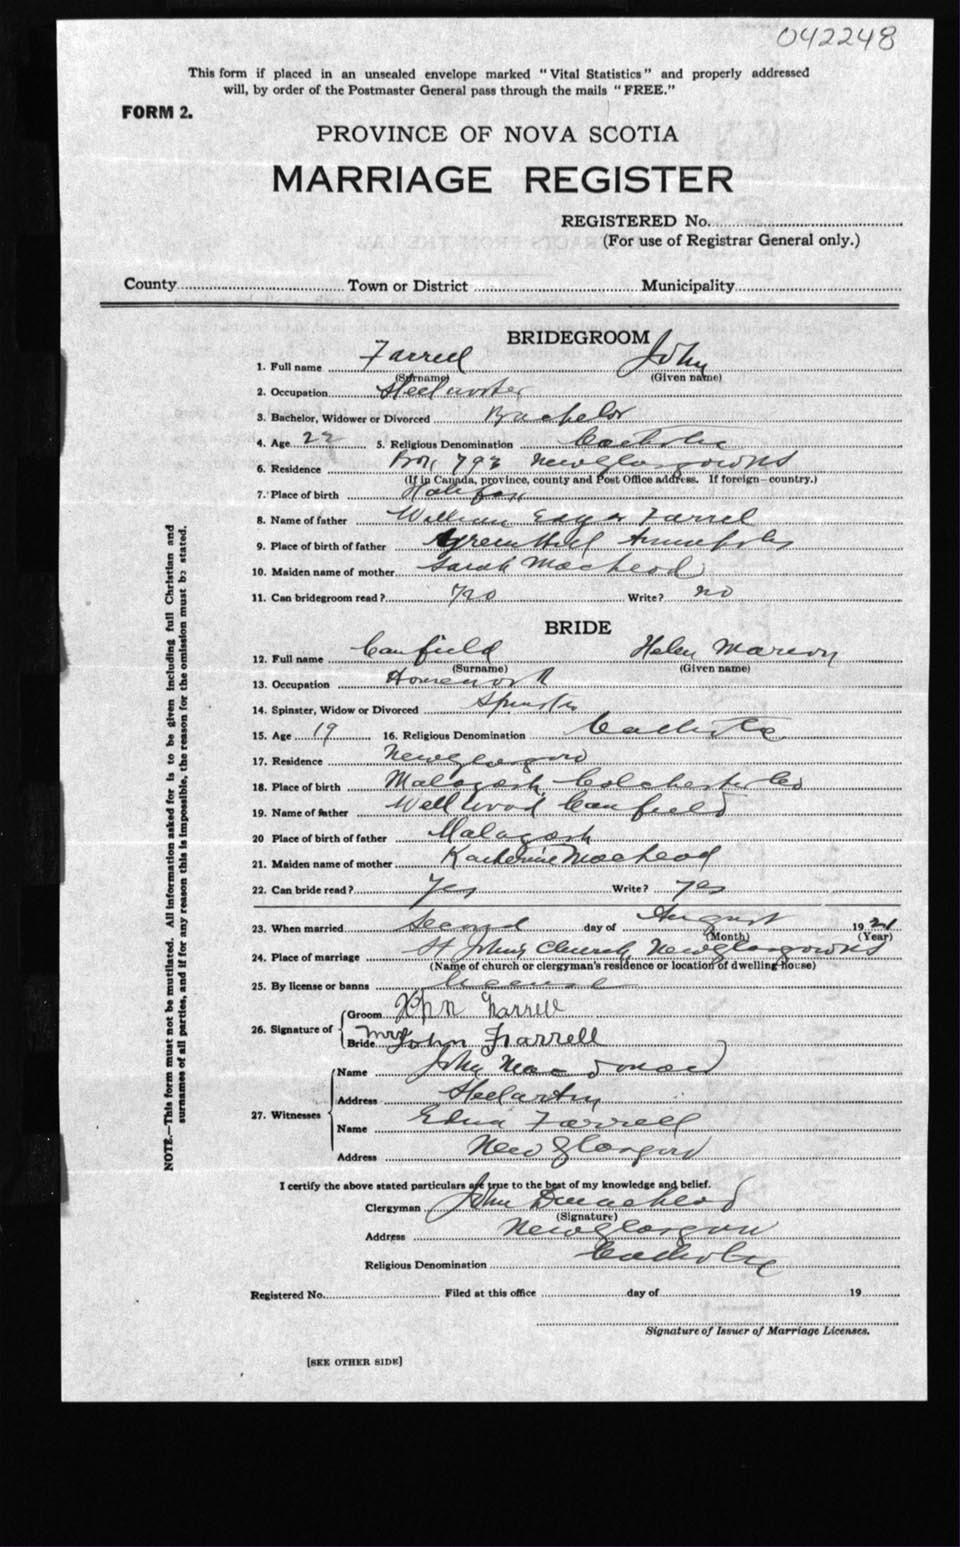 042248
This form if placed in an unsealed envelope marked "Vital Statistics" and properly addressed
will, by order of the Postmaster General pass through the mails "FREE."
FORM 2.
PROVINCE OF NOVA SCOTIA
MARRIAGE REGISTER
REGISTERED No.
(For use of Registrar General only.)
County Town or District Municipality
BRIDEGROOM
1. Full name Farrell John
(Surname) (Given name)
2. Occupation Steelworker
3. Bachelor, Widower or Divorced Bachelor
4. Age 22 5. Religious Denomination Catholic
6. Residence Box 793 New Glasgow NS
(If in Canada, province, county and Post Office address. If foreign—country.)
7. Place of birth Halifax
8. Name of father William Edgar Farrel
9. Place of birth of father Green Hill Annapolis
10. Maiden name of mother Sarah MacLeod
11. Can bridegroom read? no Write? no
BRIDE
12. Full name Canfield Helen Marion
(Surname) (Given name)
13. Occupation Housework
14. Spinster, Widow or Divorced Spinster
15. Age 19 16. Religious Denomination Catholic
17. Residence New Glasgow
18. Place of birth Malagash Colchester Co
19. Name of father Wellwood Canfield
20 Place of birth of father Malagash
21. Maiden name of mother Katherine MacLeod
22. Can bride read? Yes Write? yes
23. When married Second day of August 19
(Month) (Year)
24. Place of marriage St John's Church, New Glasgow NS
(Name of church or clergyman's residence or location of dwelling house)
25. By license or banns License
26. Signature of Groom John Farrell
Bride Mrs John Farrell
27. Witnesses Name John MacDonald
Address Stellarton
Name Edna Farrell
Address New Glasgow
I certify the above stated particulars are true to the best of my knowledge and belief.
Clergyman John D MacLeod
(Signature)
Address New Glasgow
Religious Denomination Catholic
Registered No. Filed at this office day of 19
Signature of Issuer of Marriage Licenses.
[SEE OTHER SIDE]
NOTE.—This form must not be mutilated. All information asked for is to be given including full Christian and
surnames of all parties, and if for any reason this is impossible, the reason for the omission must be stated.